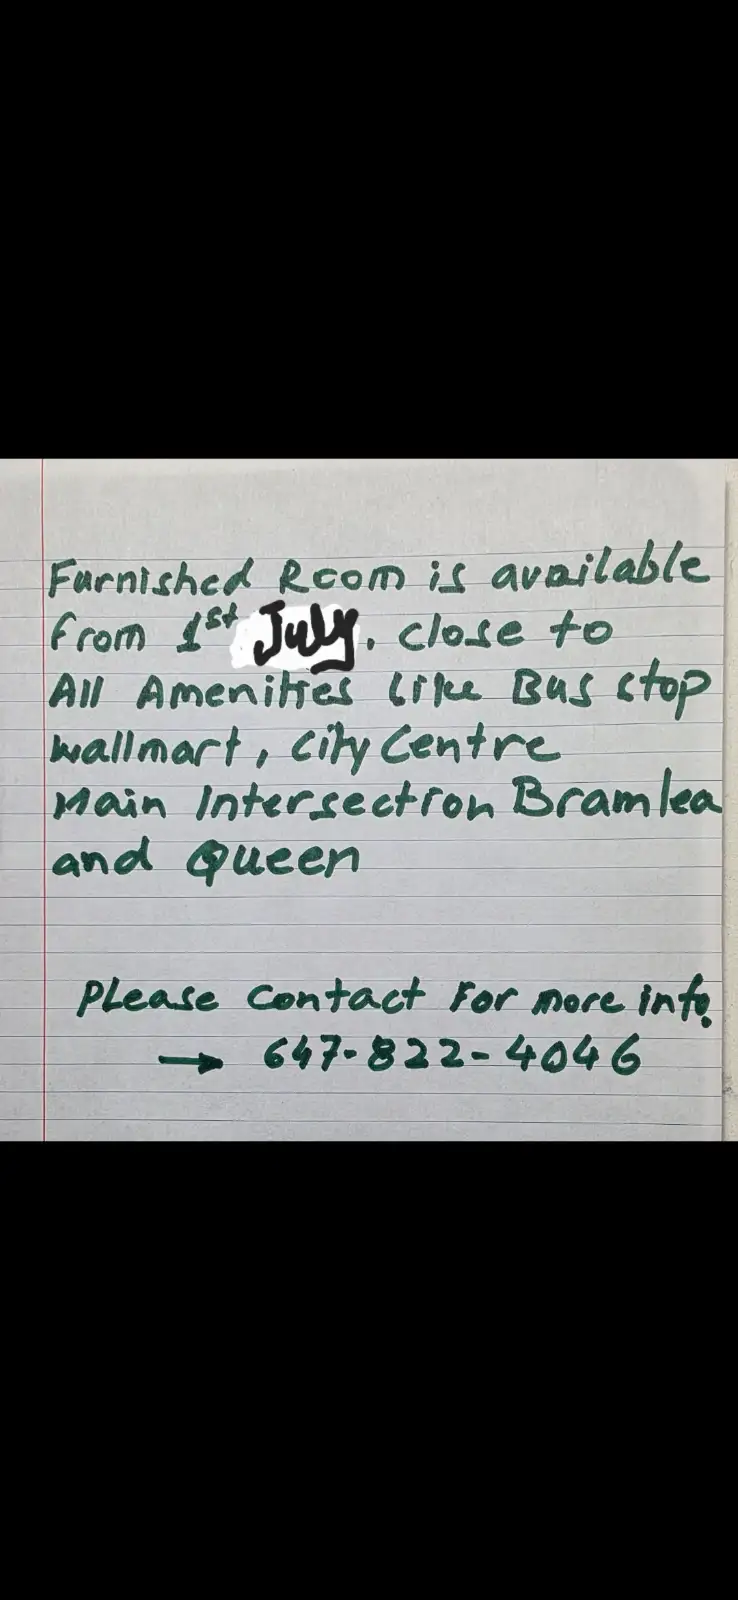 Furnished Room is available
from 1st July. close to
All Amenities Like Bus stop
Wallmart, City Centre
Main Intersection Bramlea
and Queen
Please Contact For more info.
→ 647-822-4046